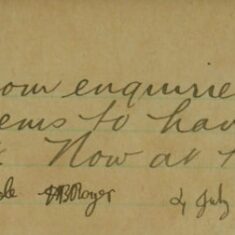 om enquirie
ems to hav
Now at
HB Roger 4 July